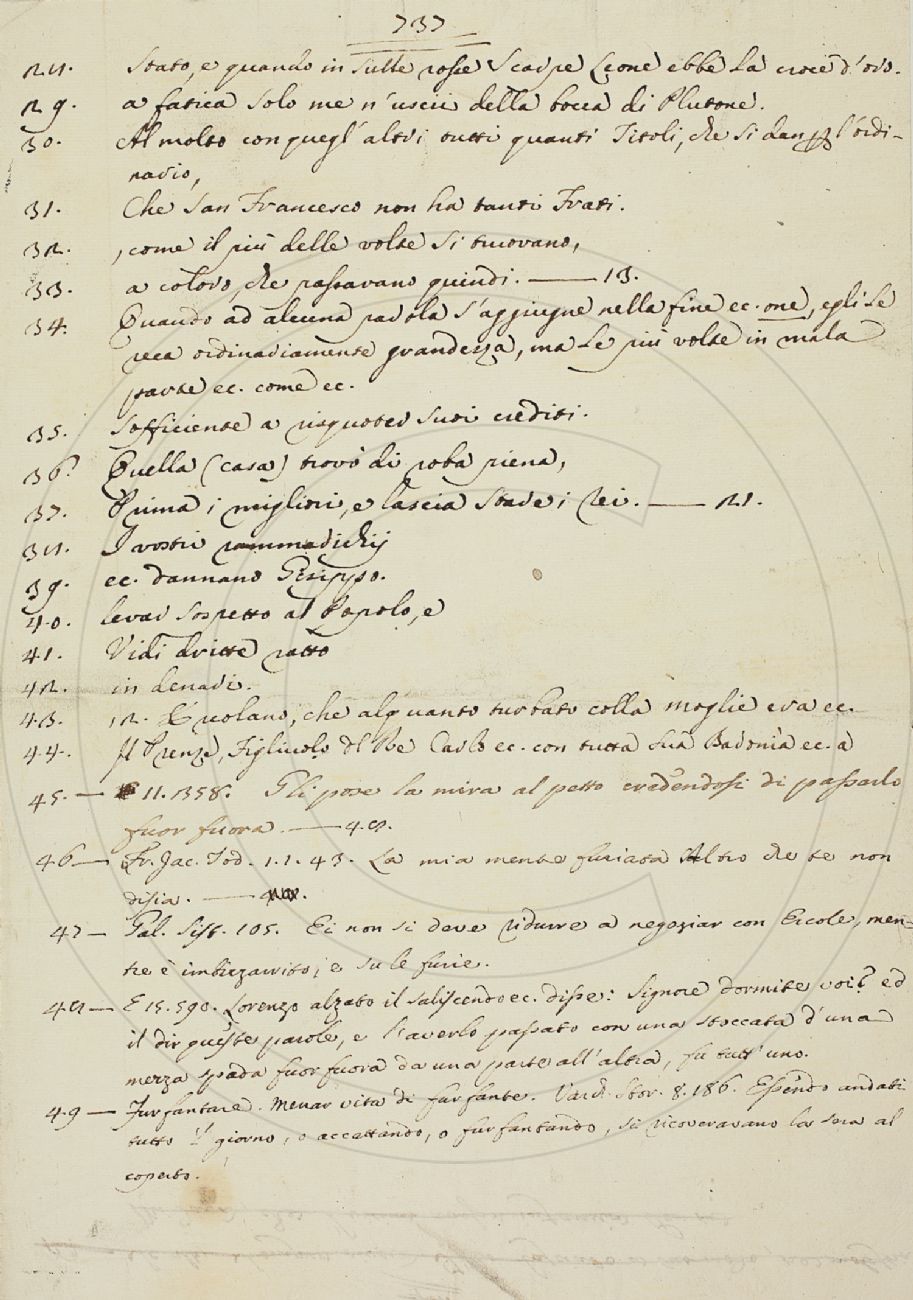 737
28. stato, e quando in sulle rosse Scarpe Leone ebbe la croce d'oro.
29. a fatica solo me n'uscii della bocca di Plutone.
30. Al molto con quegl'altri tutti quanti Titoli, che si dan per l'ordi-
nario,
31. Che San Francesco non ha tanti Frati.
32. , come il più delle volte si truovano,
33. a coloro, che passavano quindi. —— 13.
34. Quando ad alcuna parola s'aggiugne nella fine ec. one, egli le
reca ordinariamente grandezza, ma le più volte in mala
parte ec. come ec.
35. Sofficiente a risquoter suoi crediti.
36. Quella (casa) trovò di roba piena,
37. Prima i migliori, e lascia stare i rei. —— 21.
38. I vostri rammarichij
39. ec. dannano Gesippo.
40. levar sospetto al Popolo, e
41. Vidi dritte ratto
42. in denari.
43. 12. Ercolano, che alquanto turbato colla moglie era ec.
44. Il Prenze, Figliuolo del Re Carlo ec. con tutta sua Baronia ec. a
45. — 11.1358. Gli pose la mira al petto credendosi di passarlo
fuor fuora. —— 48.
46 — Fr. Jac. Tod. 1.1.43. La mia mente furiata Altro che te non
disia. ——
47 — Gal. Sist. 105. Ei non si deve ridurre a negoziar con Ercole, men-
tre è imbizzarrito, e su le furie.
48 — E 15.590. Lorenzo alzato il saliscendo ec. disse: Signore dormite voi? ed
il dir queste parole, e l'averlo passato con una stoccata d'una
mezza spada fuor fuora da una parte all'altra, fu tutt'uno.
49 — Furfantare. Menar vita di furfante. Varch. Stor. 8.186. Essendo andati
tutto 'l giorno, o accattando, o furfantando, si ricoveravano la sera al
coperto.